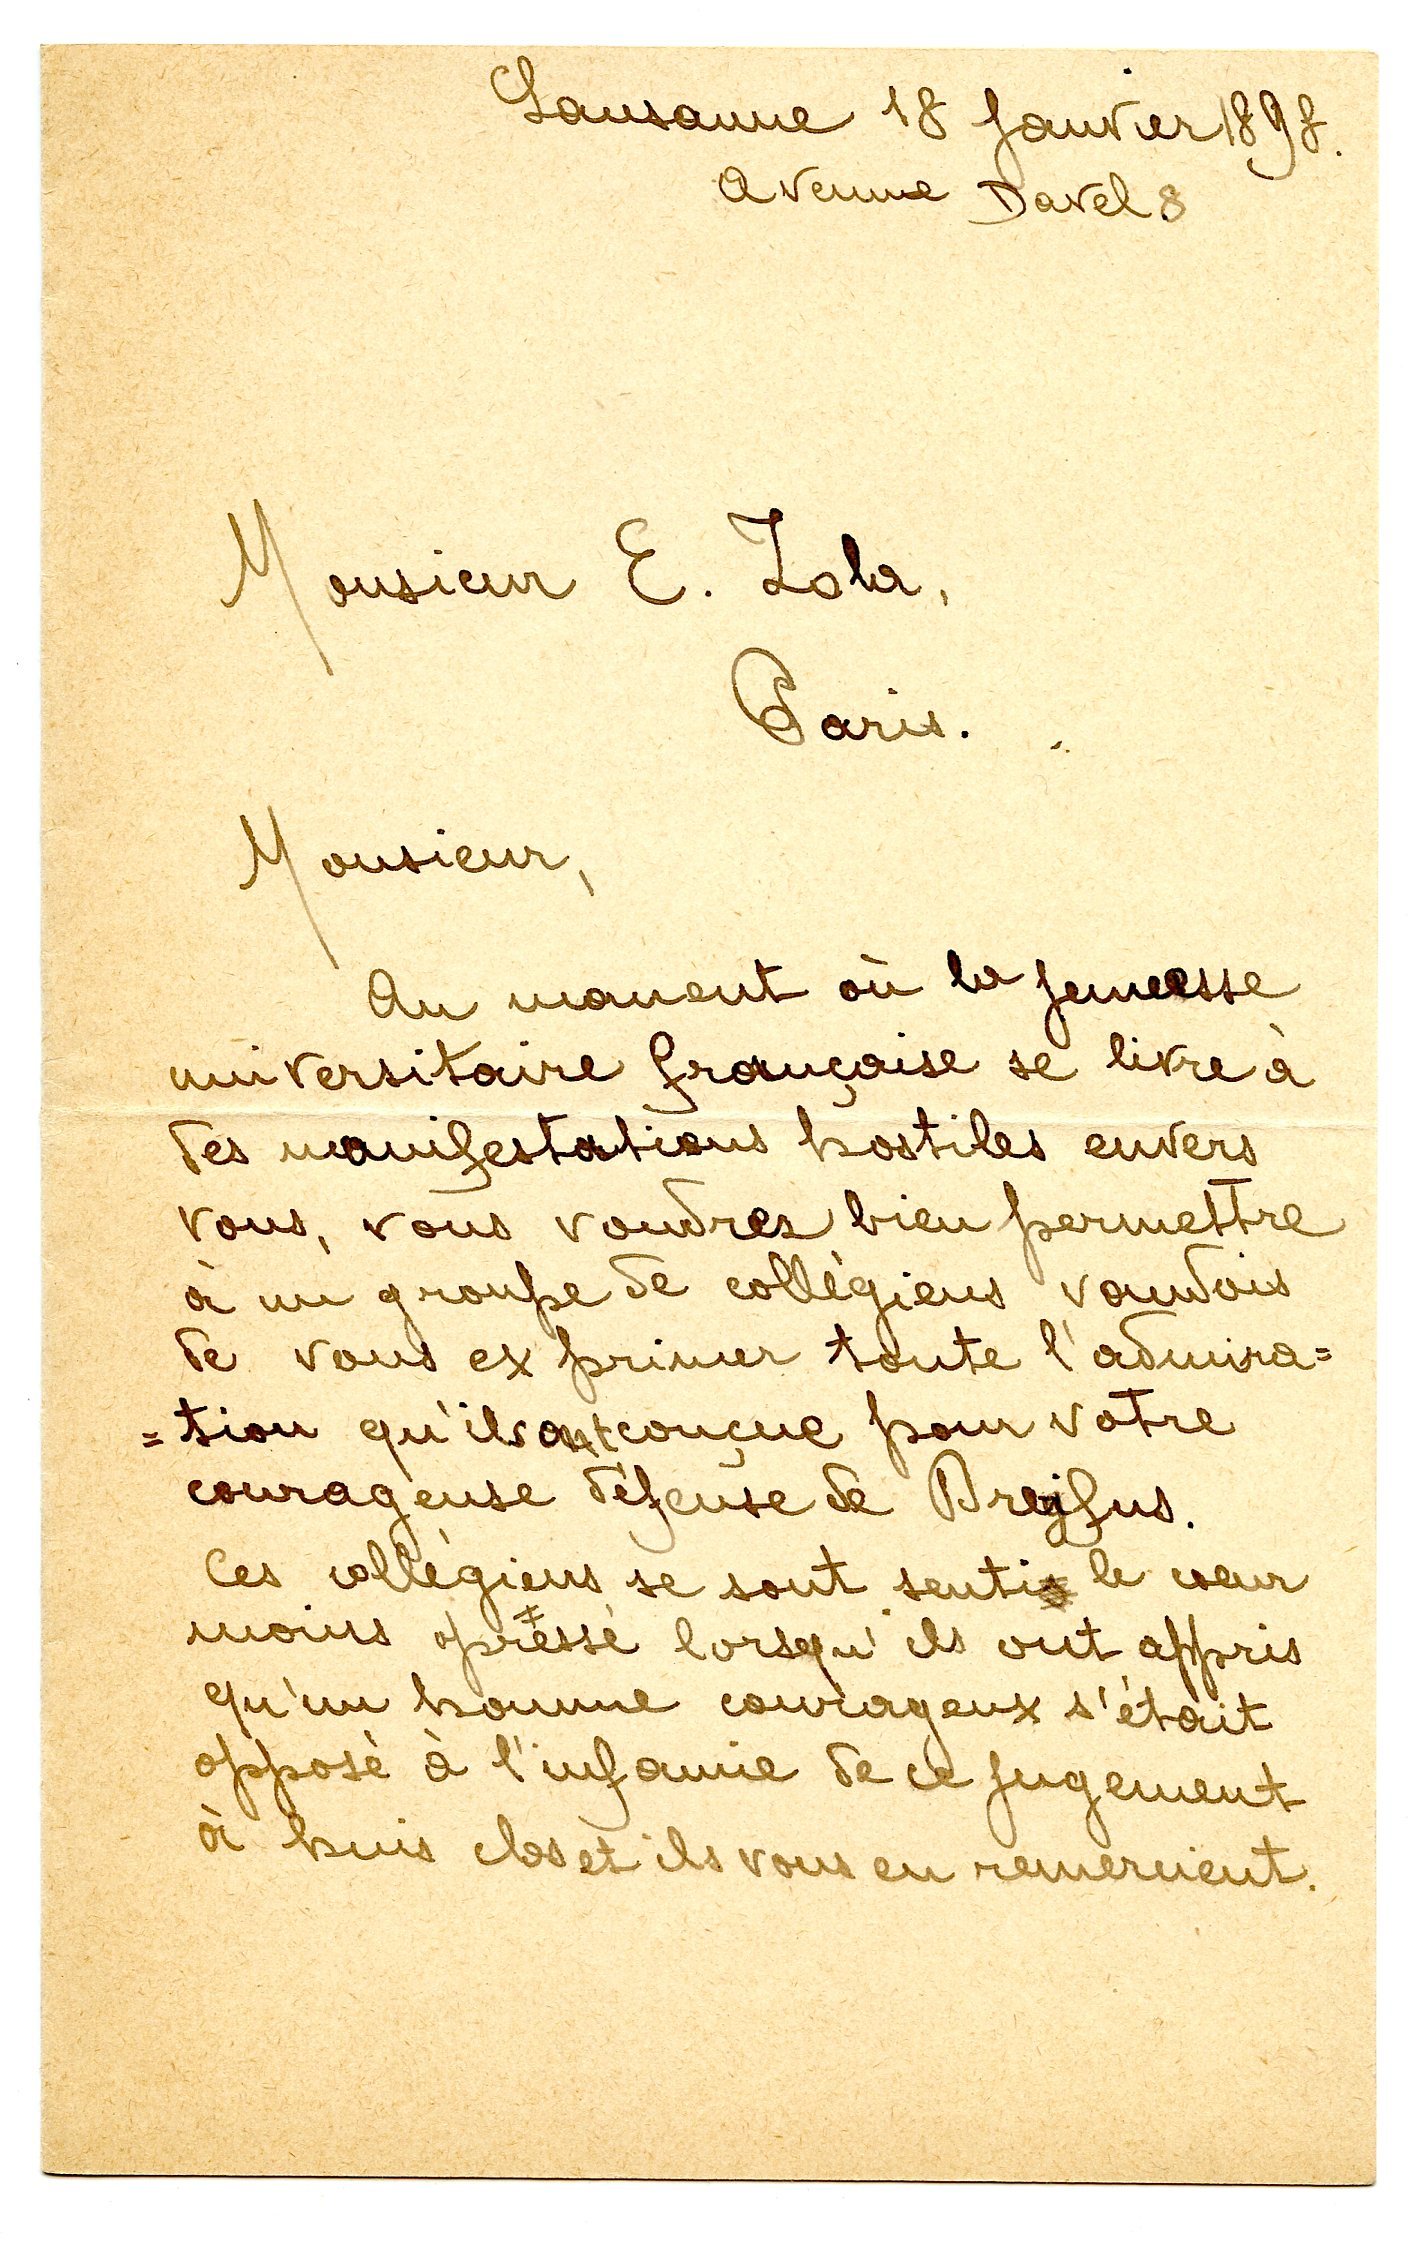 Lausanne 18 Janvier 1898.
Avenue Davel 8
Monsieur E. Zola,
Paris.
Monsieur,
Au moment où la jeunesse
universitaire française se livre à
des manifestations hostiles envers
vous, vous voudrez bien permettre
à un groupe de collègiens vaudois
de vous exprimer toute l'admira=
=tion qu'ils ont conçue pour votre
courageuse défense de Dreyfus.
Ces collègiens se sont senti le cœur
moins opressé lorsqu'ils ont appris
qu'un homme courageux s'était
opposé à l'infamie de ce jugement
à huis clos et ils vous en remercient.